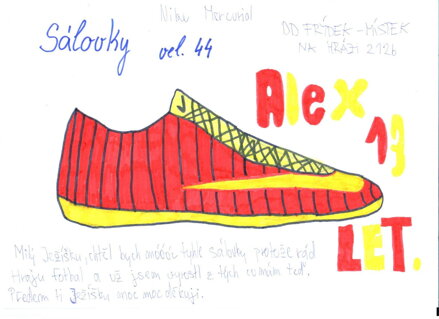 Nike Mercurial
Sálovky vel. 44
OD FRÝDEK-MÍSTEK
NA HRÁZI 2126
Alex
19
LET.
Milý Ježíšku, chtěl bych móóóc tyhle sálovky protože rád
hraju fotbal a už jsem vyrostl z těch co mám teď.
Předem ti Ježíšku moc moc děkuji.